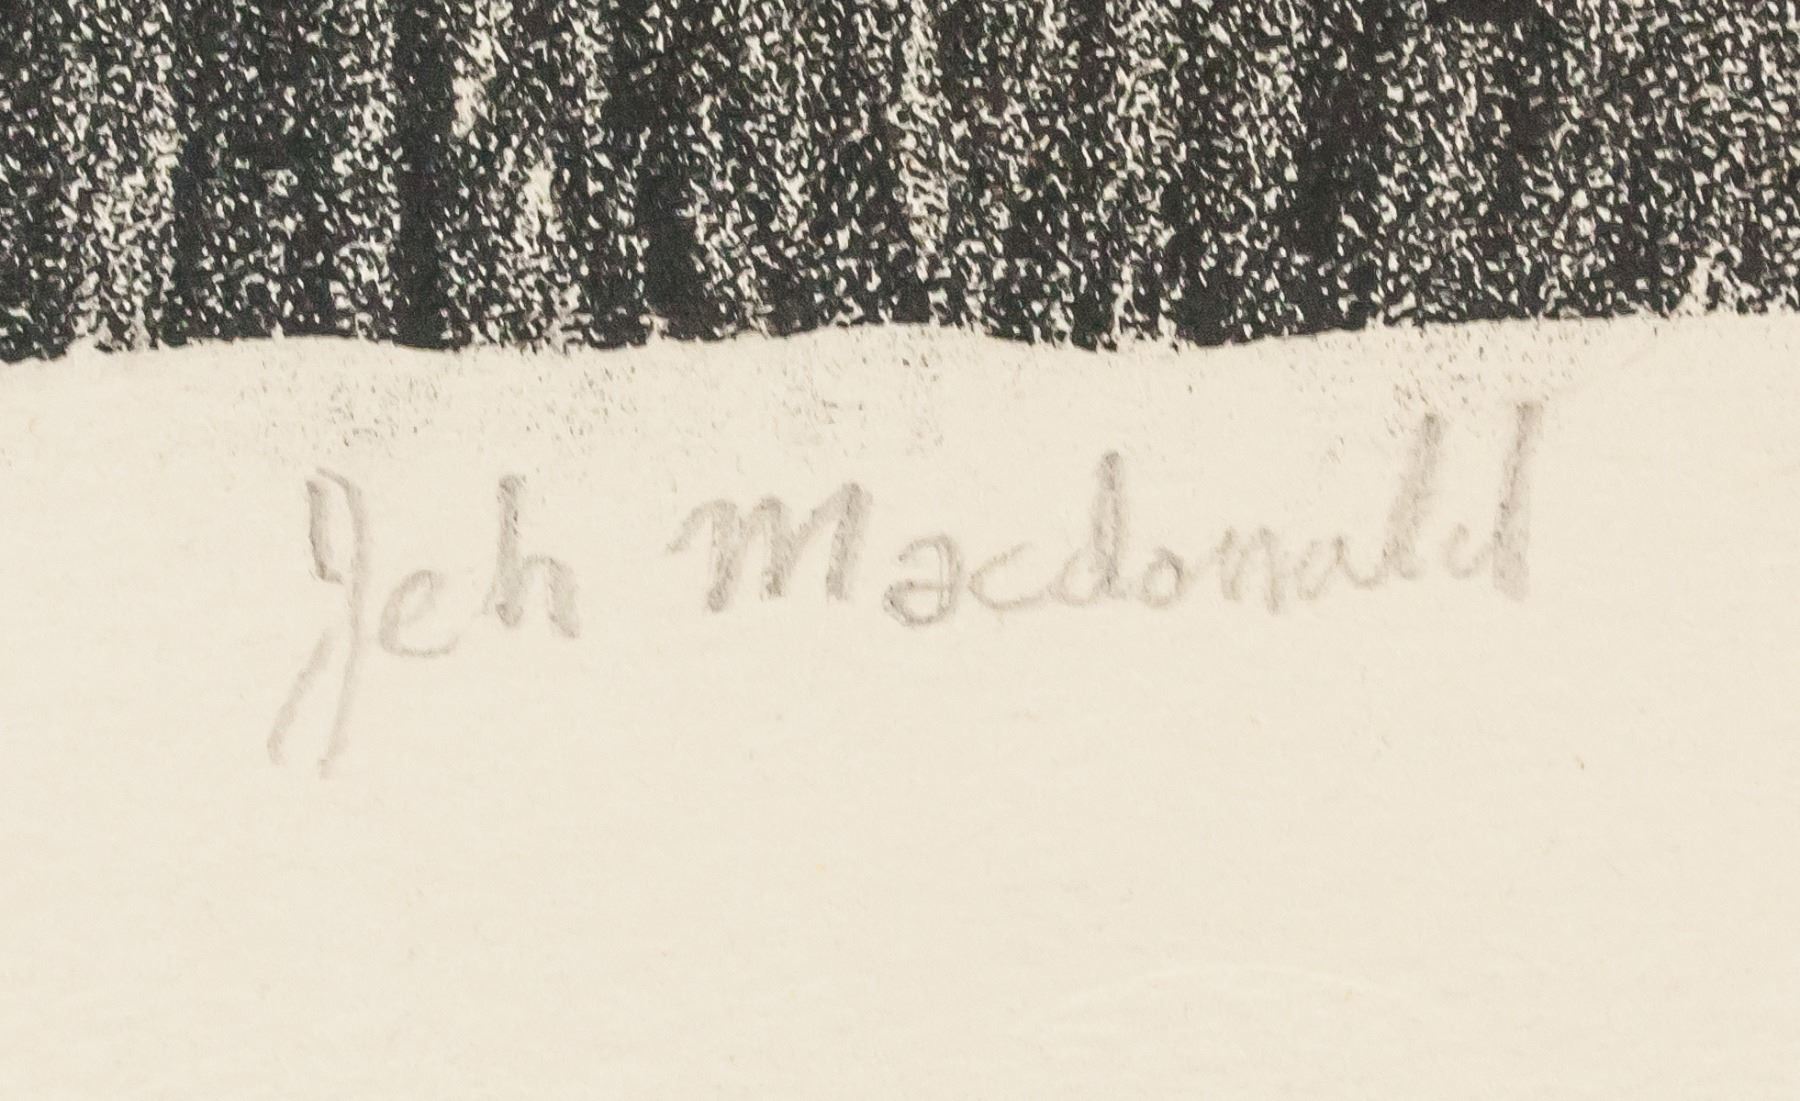 Jeh Macdonald